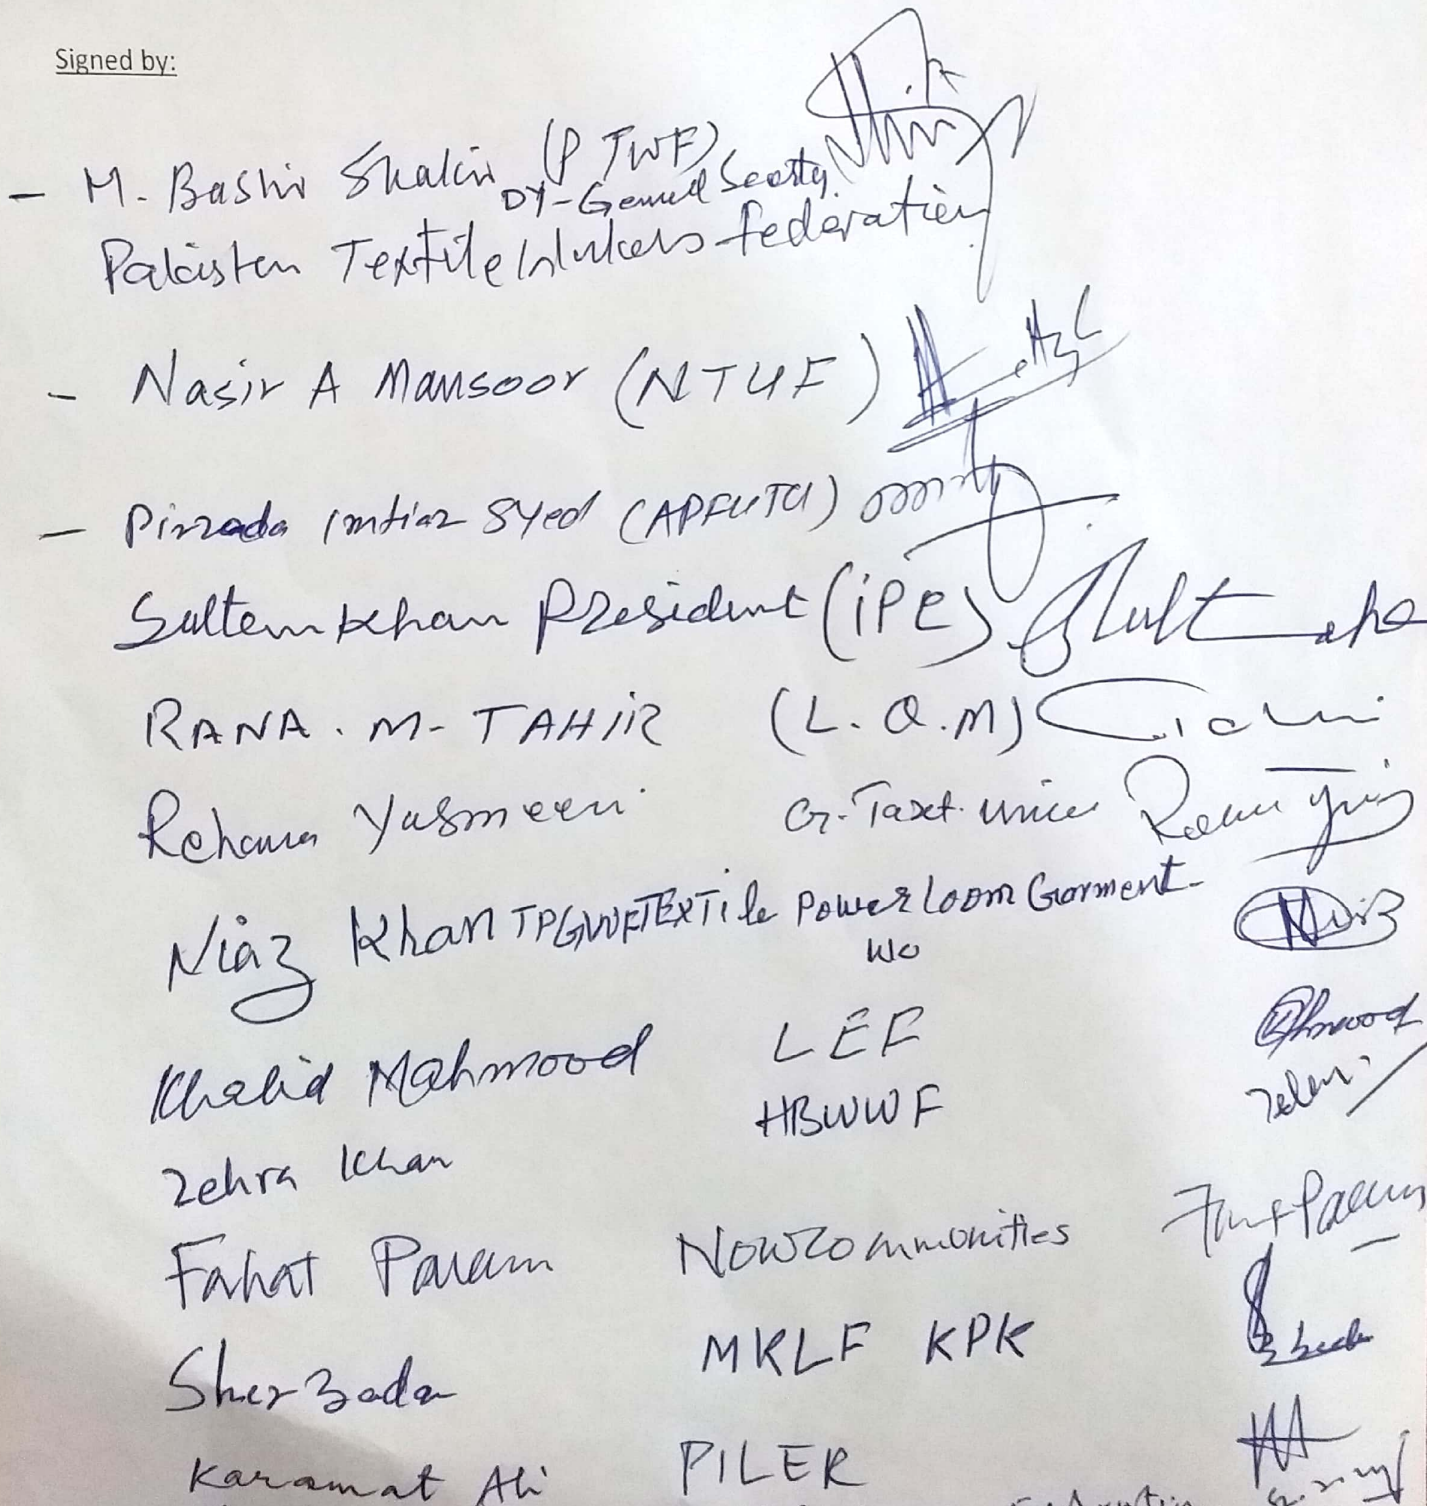 Signed by:
- M. Bashir Shakir (PTWF)
DY-General Secrty.
Pakistan Textile Workers federation
- Nasir A Mansoor (NTUF)
- Pirzada Imtiaz Syed (APFUTU)
Sultan Khan President (iPE)
RANA. M- TAHiR (L.Q.M)
Rehana Yasmeen G-Taxt.
Niaz Khan TPGWF TEXTile Power loom Garment-
wo
Khalid Mahmood LEF
Zehra Khan HBWWF
Farhat Parveen NowCommunities
Sher Zada MKLF KPK
Karamat Ali PILER